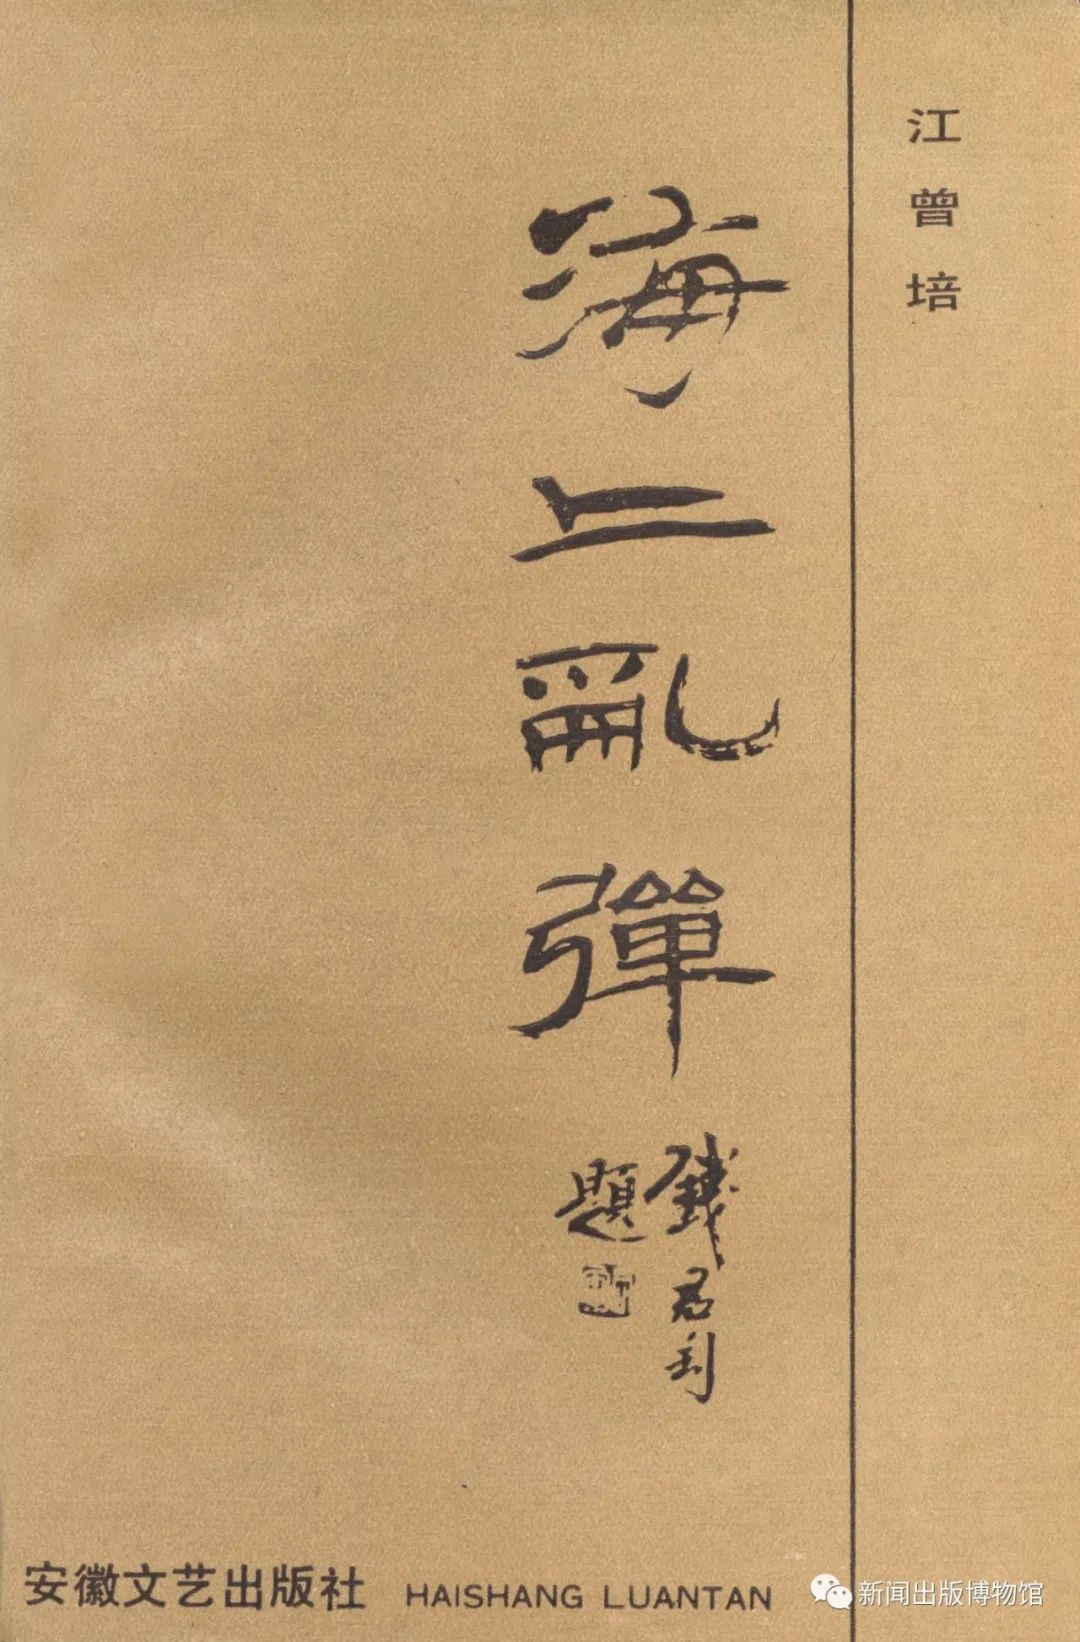 江曾培
海上亂彈
錢君匋
題
安徽文艺出版社 HAISHANG LUANTAN
新闻出版博物馆